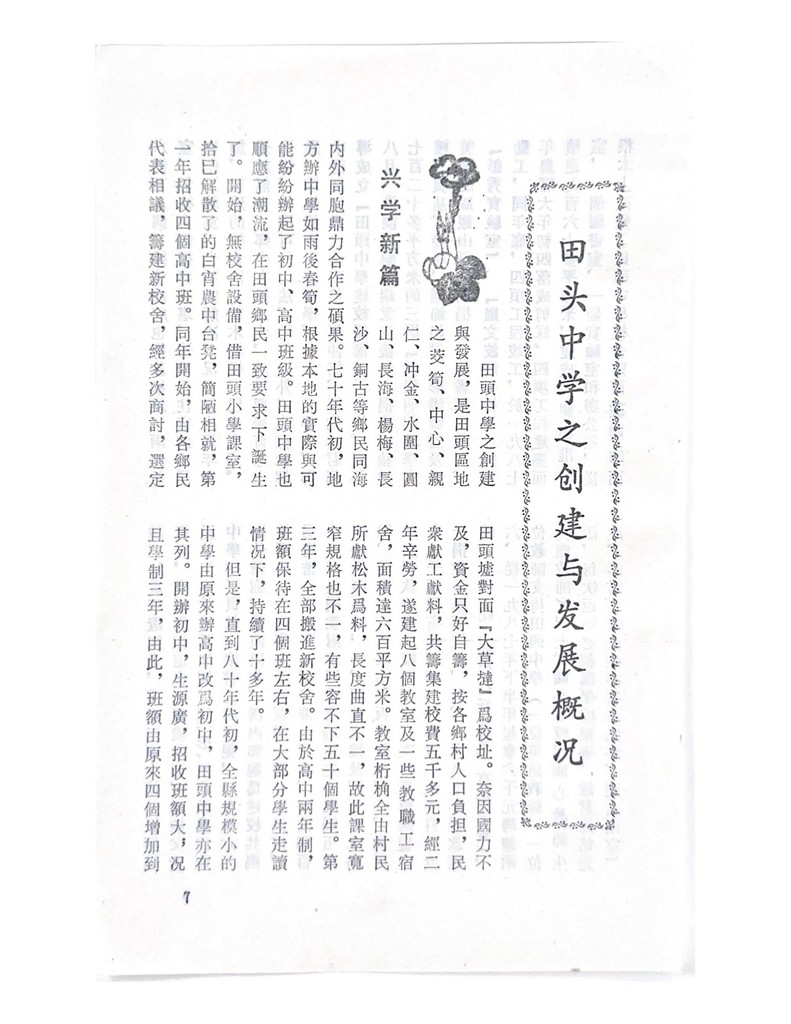 田头中学之创建与发展概况
兴学新篇
田頭中學之創建
與發展，是田頭區地
之茭筍、中心、親
仁、冲金、水圍、圓
山、長海、楊梅、長
沙、銅古等鄉民同海
内外同胞鼎力合作之碩果。七十年代初，地
方辦中學如雨後春筍，根據本地的實際與可
能紛紛辦起了初中、高中班級。田頭中學也
順應了潮流，在田頭鄉民一致要求下誕生
了。開始，無校舍設備，借田頭小學課室，
拾已解散了的白宵農中台凳，簡陋相就，第
一年招收四個高中班。同年開始，由各鄉民
代表相議，籌建新校舍，經多次商討，選定
田頭墟對面『大草墶』爲校址。奈因國力不
及，資金只好自籌，按各鄉村人口負担，民
衆獻工獻料，共籌集建校費五千多元，經二
年辛勞，遂建起八個教室及一些教職工宿
舍，面積達六百平方米。教室桁桷全由村民
所獻松木爲料，長度曲直不一，故此課室寬
窄規格也不一，有些容不下五十個學生。第
三年，全部搬進新校舍。由於高中兩年制，
班額保待在四個班左右，在大部分學生走讀
情况下，持續了十多年。
但是，直到八十年代初，全縣規模小的
中學由原來辦高中改爲初中，田頭中學亦在
其列。開辦初中，生源廣，招收班額大，况
且學制三年，由此，班額由原來四個增加到
7